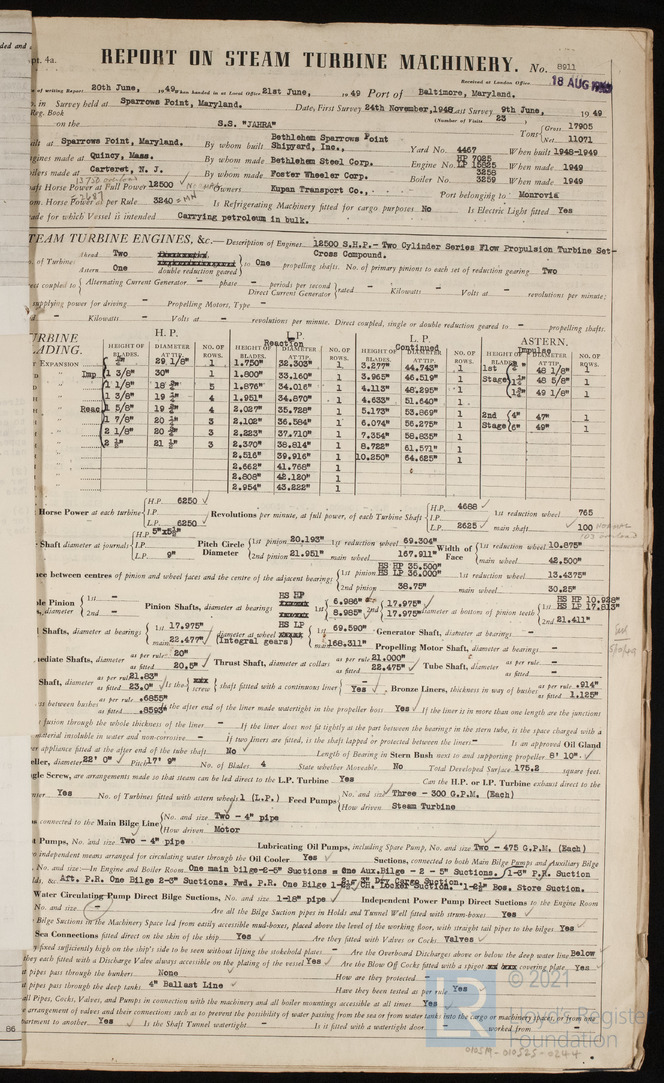 ded and
pt. 4a.
REPORT ON STEAM TURBINE MACHINERY. No. 8911
Received at London Office 18 AUG 1949
of writing Report 20th June, 1949 When handed in at Local Office 21st June, 1949 Port of Baltimore, Maryland.
in Survey held at Sparrows Point, Maryland. Date, First Survey 24th November, 1948 Last Survey 9th June, 1949
Reg. Book (Number of Visits 23
on the S.S. "JAHRA" Tons Gross 17905 Net 11071
at Sparrows Point, Maryland. By whom built Bethlehem Sparrows Point Shipyard, Inc., Yard No. 4467 When built 1948-1949
gines made at Quincy, Mass. By whom made Bethlehem Steel Corp. Engine No. HP 7025 LP 15825 When made 1949
ilers made at Carteret, N. J. By whom made Foster Wheeler Corp. Boiler No. 3258 3259 When made 1949
haft Horse Power at Full Power 12500 Owners Kupan Transport Co., Port belonging to Monrovia
om. Horse Power as per Rule 3240 = MN Is Refrigerating Machinery fitted for cargo purposes No Is Electric Light fitted Yes
ade for which Vessel is intended Carrying petroleum in bulk.
STEAM TURBINE ENGINES, &c.—Description of Engines 12500 S.H.P.- Two Cylinder Series Flow Propulsion Turbine Set- Cross Compound.
o. of Turbines Ahead Two Astern One double reduction geared to One propelling shafts. No. of primary pinions to each set of reduction gearing Two
ect coupled to Alternating Current Generator - phase - periods per second Direct Current Generator rated - Kilowatts - Volts at - revolutions per minute;
supplying power for driving - Propelling Motors, Type -
- Kilowatts - Volts at - revolutions per minute. Direct coupled, single or double reduction geared to - propelling shafts.
TURBINE BLADING. H. P. L. P. Reaction L. P. Continued ASTERN. Impulse
HEIGHT OF BLADES. DIAMETER AT TIP. NO. OF ROWS. HEIGHT OF BLADES. DIAMETER AT TIP. NO. OF ROWS. HEIGHT OF BLADES. DIAMETER AT TIP. NO. OF ROWS. HEIGHT OF BLADES. DIAMETER AT TIP. NO. OF ROWS.
EXPANSION 29 1/8" 1 1.750" 32.303" 1 3.277" 44.743" 1 1st 48 1/8" 1
Imp 1 3/8" 30" 1 1.800" 33.160" 1 3.965" 46.519" 1 Stage 48 5/8" 1
1 1/8" 18 5 1.876" 34.016" 1 4.113" 48.295" 1 49 1/8" 1
1 3/8" 19 4 1.951" 34.870" 1 4.633" 51.640" 1
Reac 1 5/8" 19 4 2.027" 35.728" 1 5.173" 53.869" 1 2nd 4" 47" 1
1 7/8" 20 3 2.102" 36.584" 1 6.074" 56.275" 1 Stage 6" 49" 1
2 1/8" 20 3 2.223" 37.710" 1 7.354" 58.835" 1
2 ½" 21 ½" 3 2.370" 38.814" 1 8.722" 61.571" 1
2.516" 39.916" 1 10.250" 64.625" 1
2.662" 41.768" 1
2.808" 42.120" 1
2.954" 43.222" 1
Horse Power at each turbine H.P. 6250 I.P. L.P. 6250 Revolutions per minute, at full power, of each Turbine Shaft H.P. 4688 I.P. L.P. 2625 1st reduction wheel 765 main shaft 100
Shaft diameter at journals H.P. 5"x5½" I.P. L.P. 9" Pitch Circle Diameter 1st pinion 20.193" 2nd pinion 21.951" 1st reduction wheel 69.304" main wheel 167.911" Width of Face 1st reduction wheel 10.875" main wheel 42.500"
nce between centres of pinion and wheel faces and the centre of the adjacent bearings 1st pinion HS HP 35.500" HS LP 36.000" 2nd pinion 38.75" 1st reduction wheel 13.4375" main wheel 30.25"
le Pinion diameter 1st - 2nd - Pinion Shafts, diameter at bearings HS HP HS LP 1st 6.986" 8.985" 2nd 17.975" 17.975" diameter at bottom of pinion teeth 1st HS HP 10.928" HS LP 17.813" 2nd 21.411"
l Shafts, diameter at bearings 1st 17.975" main 22.477" diameter at wheel (Integral gears) 1st 69.590" main 168.311" Generator Shaft, diameter at bearings - Propelling Motor Shaft, diameter at bearings -
mediate Shafts, diameter as per rule 20" as fitted 20.5" Thrust Shaft, diameter at collars as per rule 21.000" as fitted 22.475" Tube Shaft, diameter as per rule - as fitted -
Shaft, diameter as per rule 21.83" as fitted 23.0" Is the screw shaft fitted with a continuous liner Yes Bronze Liners, thickness in way of bushes as per rule .914" as fitted 1.125"
ss between bushes as per rule .6855" as fitted .8593" Is the after end of the liner made watertight in the propeller boss Yes If the liner is in more than one length are the junctions
fusion through the whole thickness of the liner - If the liner does not fit tightly at the part between the bearings in the stern tube, is the space charged with a
material insoluble in water and non-corrosive - If two liners are fitted, is the shaft lapped or protected between the liners - Is an approved Oil Gland
er appliance fitted at the after end of the tube shaft No Length of Bearing in Stern Bush next to and supporting propeller 8' 10"
eller, diameter 22' 0" Pitch 17' 9" No. of Blades 4 State whether Moveable No Total Developed Surface 175.2 square feet.
gle Screw, are arrangements made so that steam can be led direct to the L.P. Turbine Yes Can the H.P. or I.P. Turbine exhaust direct to the
nser Yes No. of Turbines fitted with astern wheels 1 (L.P.) Feed Pumps No. and size Three - 300 G.P.M. (Each) How driven Steam Turbine
s connected to the Main Bilge Line No. and size Two - 4" pipe How driven Motor
t Pumps, No. and size Two - 4" pipe Lubricating Oil Pumps, including Spare Pump, No. and size Two - 475 G.P.M. (Each)
independent means arranged for circulating water through the Oil Cooler Yes Suctions, connected to both Main Bilge Pumps and Auxiliary Bilge
No. and size:—In Engine and Boiler Room One main bilge-2-5" Suctions = One Aux.Bilge - 2 - 5" Suctions. /1-6" P.R. Suction
&c. Aft. P.R. One Bilge 2-3" Suctions. Fwd. P.R. One Bilge Dry Cargo Suction. Ch. Locker Suction. Bos. Store Suction.
Water Circulating Pump Direct Bilge Suctions, No. and size 1-18" pipe Independent Power Pump Direct Suctions to the Engine Room
No. and size - Are all the Bilge Suction pipes in Holds and Tunnel Well fitted with strum-boxes Yes
Bilge Suctions in the Machinery Space led from easily accessible mud-boxes, placed above the level of the working floor, with straight tail pipes to the bilges Yes
Sea Connections fitted direct on the skin of the ship Yes Are they fitted with Valves or Cocks Valves
y fixed sufficiently high on the ship's side to be seen without lifting the stokehold plates - Are the Overboard Discharges above or below the deep water line Below
they each fitted with a Discharge Valve always accessible on the plating of the vessel Yes Are the Blow Off Cocks fitted with a spigot covering plate Yes
t pipes pass through the bunkers None How are they protected -
t pipes pass through the deep tanks 4" Ballast Line Have they been tested as per rule Yes
all Pipes, Cocks, Valves, and Pumps in connection with the machinery and all boiler mountings accessible at all times Yes
arrangement of valves and their connections such as to prevent the possibility of water passing from the sea or from water tanks into the cargo or machinery spaces, or from one
artment to another Yes Is the Shaft Tunnel watertight - Is it fitted with a watertight door - worked from -
86
LR
© 2021
Lloyd's Register
Foundation
010519-010525-0244